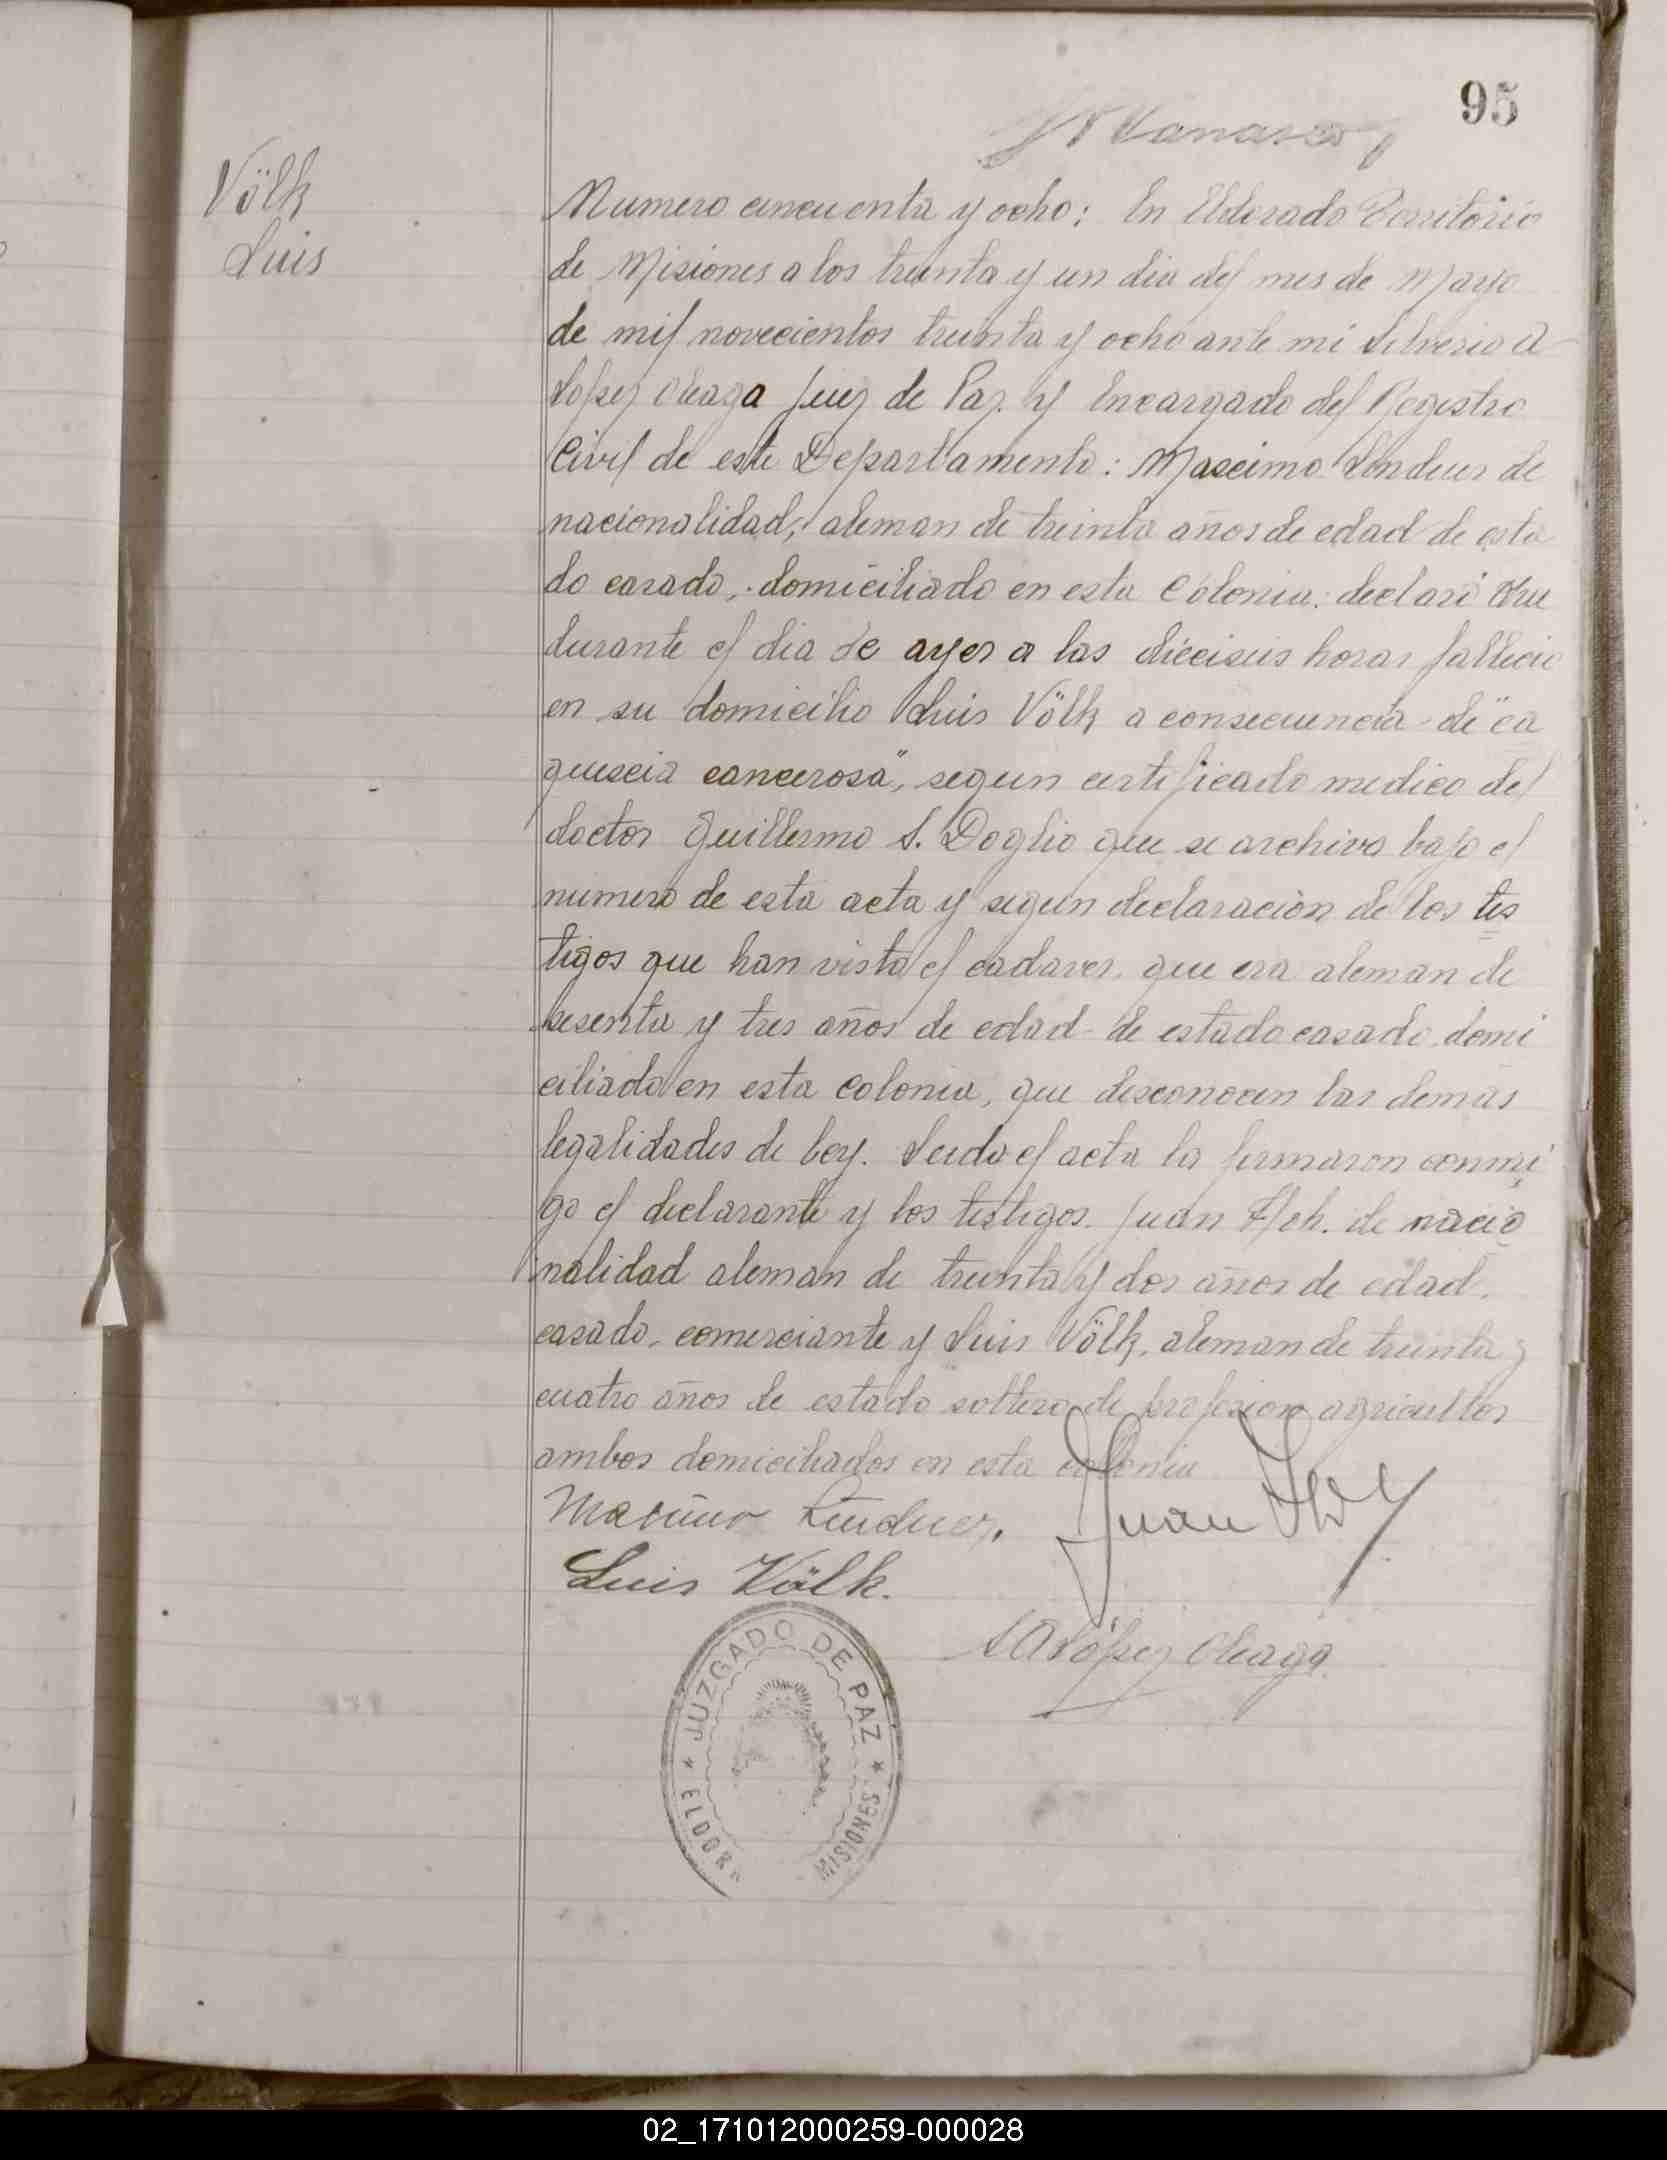 95
Völk
Luis
Numero cincuenta y ocho: En Eldorado Territorio
de Misiones a los treinta y un dia del mes de Mayo
de mil novecientos treinta y ocho ante mi Silverio A
López Oleaga Juez de Paz y Encargado del Registro
Civil de este Departamento: Mascimo Lindner de
nacionalidad, aleman de treinta años de edad de esta
do casado, domiciliado en esta Colonia: declaró Que
durante el dia de ayer a las dieciseis horas fallecio
en su domicilio Luis Völk a consecuencia de "ca
quescia cancerosa", segun certificado medico del
doctor Guillermo S. Doglio que se archiva bajo el
numero de esta acta y segun declaracion de los tes
tigos que han vista el cadaver, que era aleman de
sesenta y tres años de edad de estado casado, domi
ciliado en esta Colonia, que desconocen las demás
legalidades de ley. Leida el acta la firmaron conmi
go el declarante y los testigos. Juan de nacio
nalidad aleman de treinta y dos años de edad,
casado, comerciante y Luis Völk, aleman de treinta y
cuatro años de estado soltero de profesion agricultor
ambos domiciliados en esta colonia
Lindner. Juan
Luis Völk.
S A López Oleaga
JUZGADO DE PAZ
ELDOR
MISIONES
02_171012000259-000028